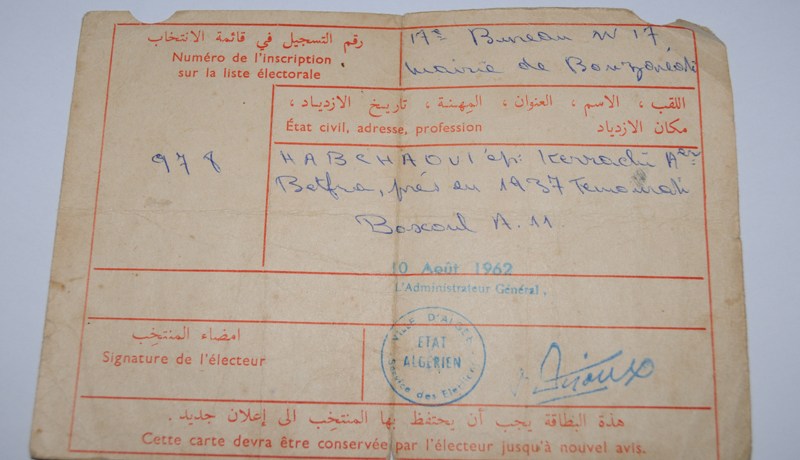 رقم التسجيل في قائمة الانتخاب
Numéro de l'inscription
sur la liste électorale
17e Bureau N 17
Mairie de Bouzaréah
اللقب ، الاسم ، العنوان ، المِهنَة ، تاريخ الازدياد ،
مكان الازدياد
État civil, adresse, profession
978
HABCHAOUI ép:
en 1937
A.11
10 Août 1962
L'Administrateur Général,
امضاء المنتخِب
Signature de l'électeur
VILLE D'ALGER
ETAT
ALGÉRIEN
Service des Elections
هذة البطاقة يجب أن يحتفظ بها المنتخِب الى إعلان جديد.
Cette carte devra être conservée par l'électeur jusqu'à nouvel avis.